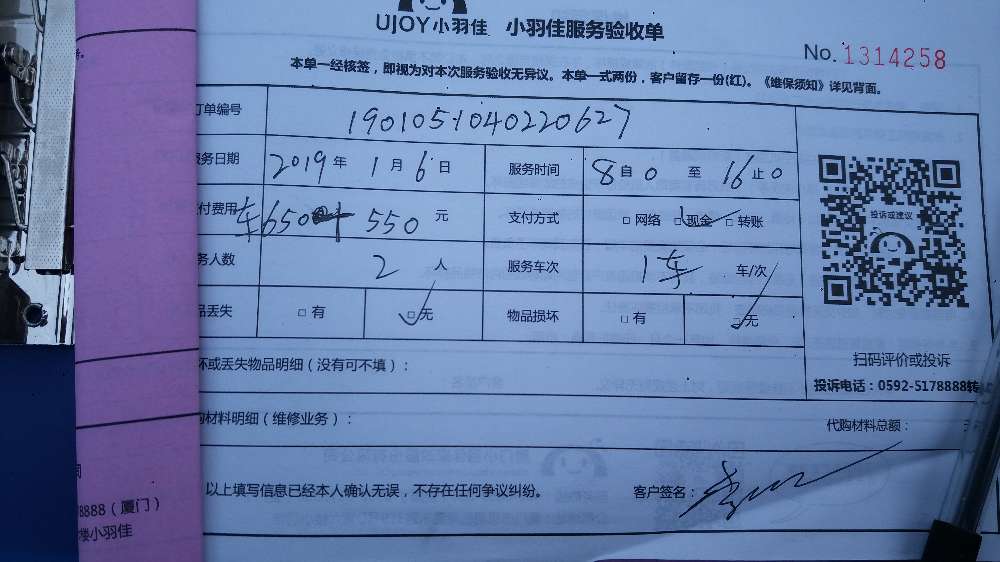 UJOY小羽佳 小羽佳服务验收单
No. 1314258
本单一经核签，即视为对本次服务验收无异议。本单一式两份，客户留存一份(红)。《维保须知》详见背面。
订单编号 1901051040220627
服务日期 2019年1月6日 服务时间 8自0至16止0
付费用 车650 550元 支付方式 □网络 □现金 □转账
务人数 2人 服务车次 1车 车/次
品丢失 □有 □无 物品损坏 □有 □无
投诉或建议
扫码评价或投诉
投诉电话：0592-5178888转
坏或丢失物品明细（没有可不填）：
购材料明细（维修业务）： 代购材料总额：
以上填写信息已经本人确认无误，不存在任何争议纠纷。 客户签名：
8888（厦门）
楼小羽佳